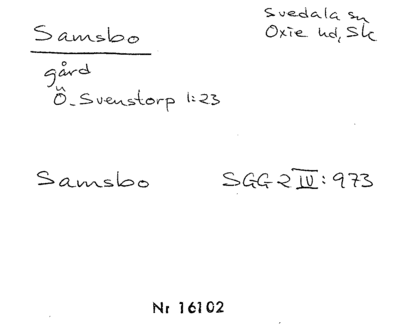 Samsbo
Svedala sn
Oxie hd, Sk
gård
Ö. Svenstorp 1:23
Samsbo
SGG 2 IV: 973
Nr 16102